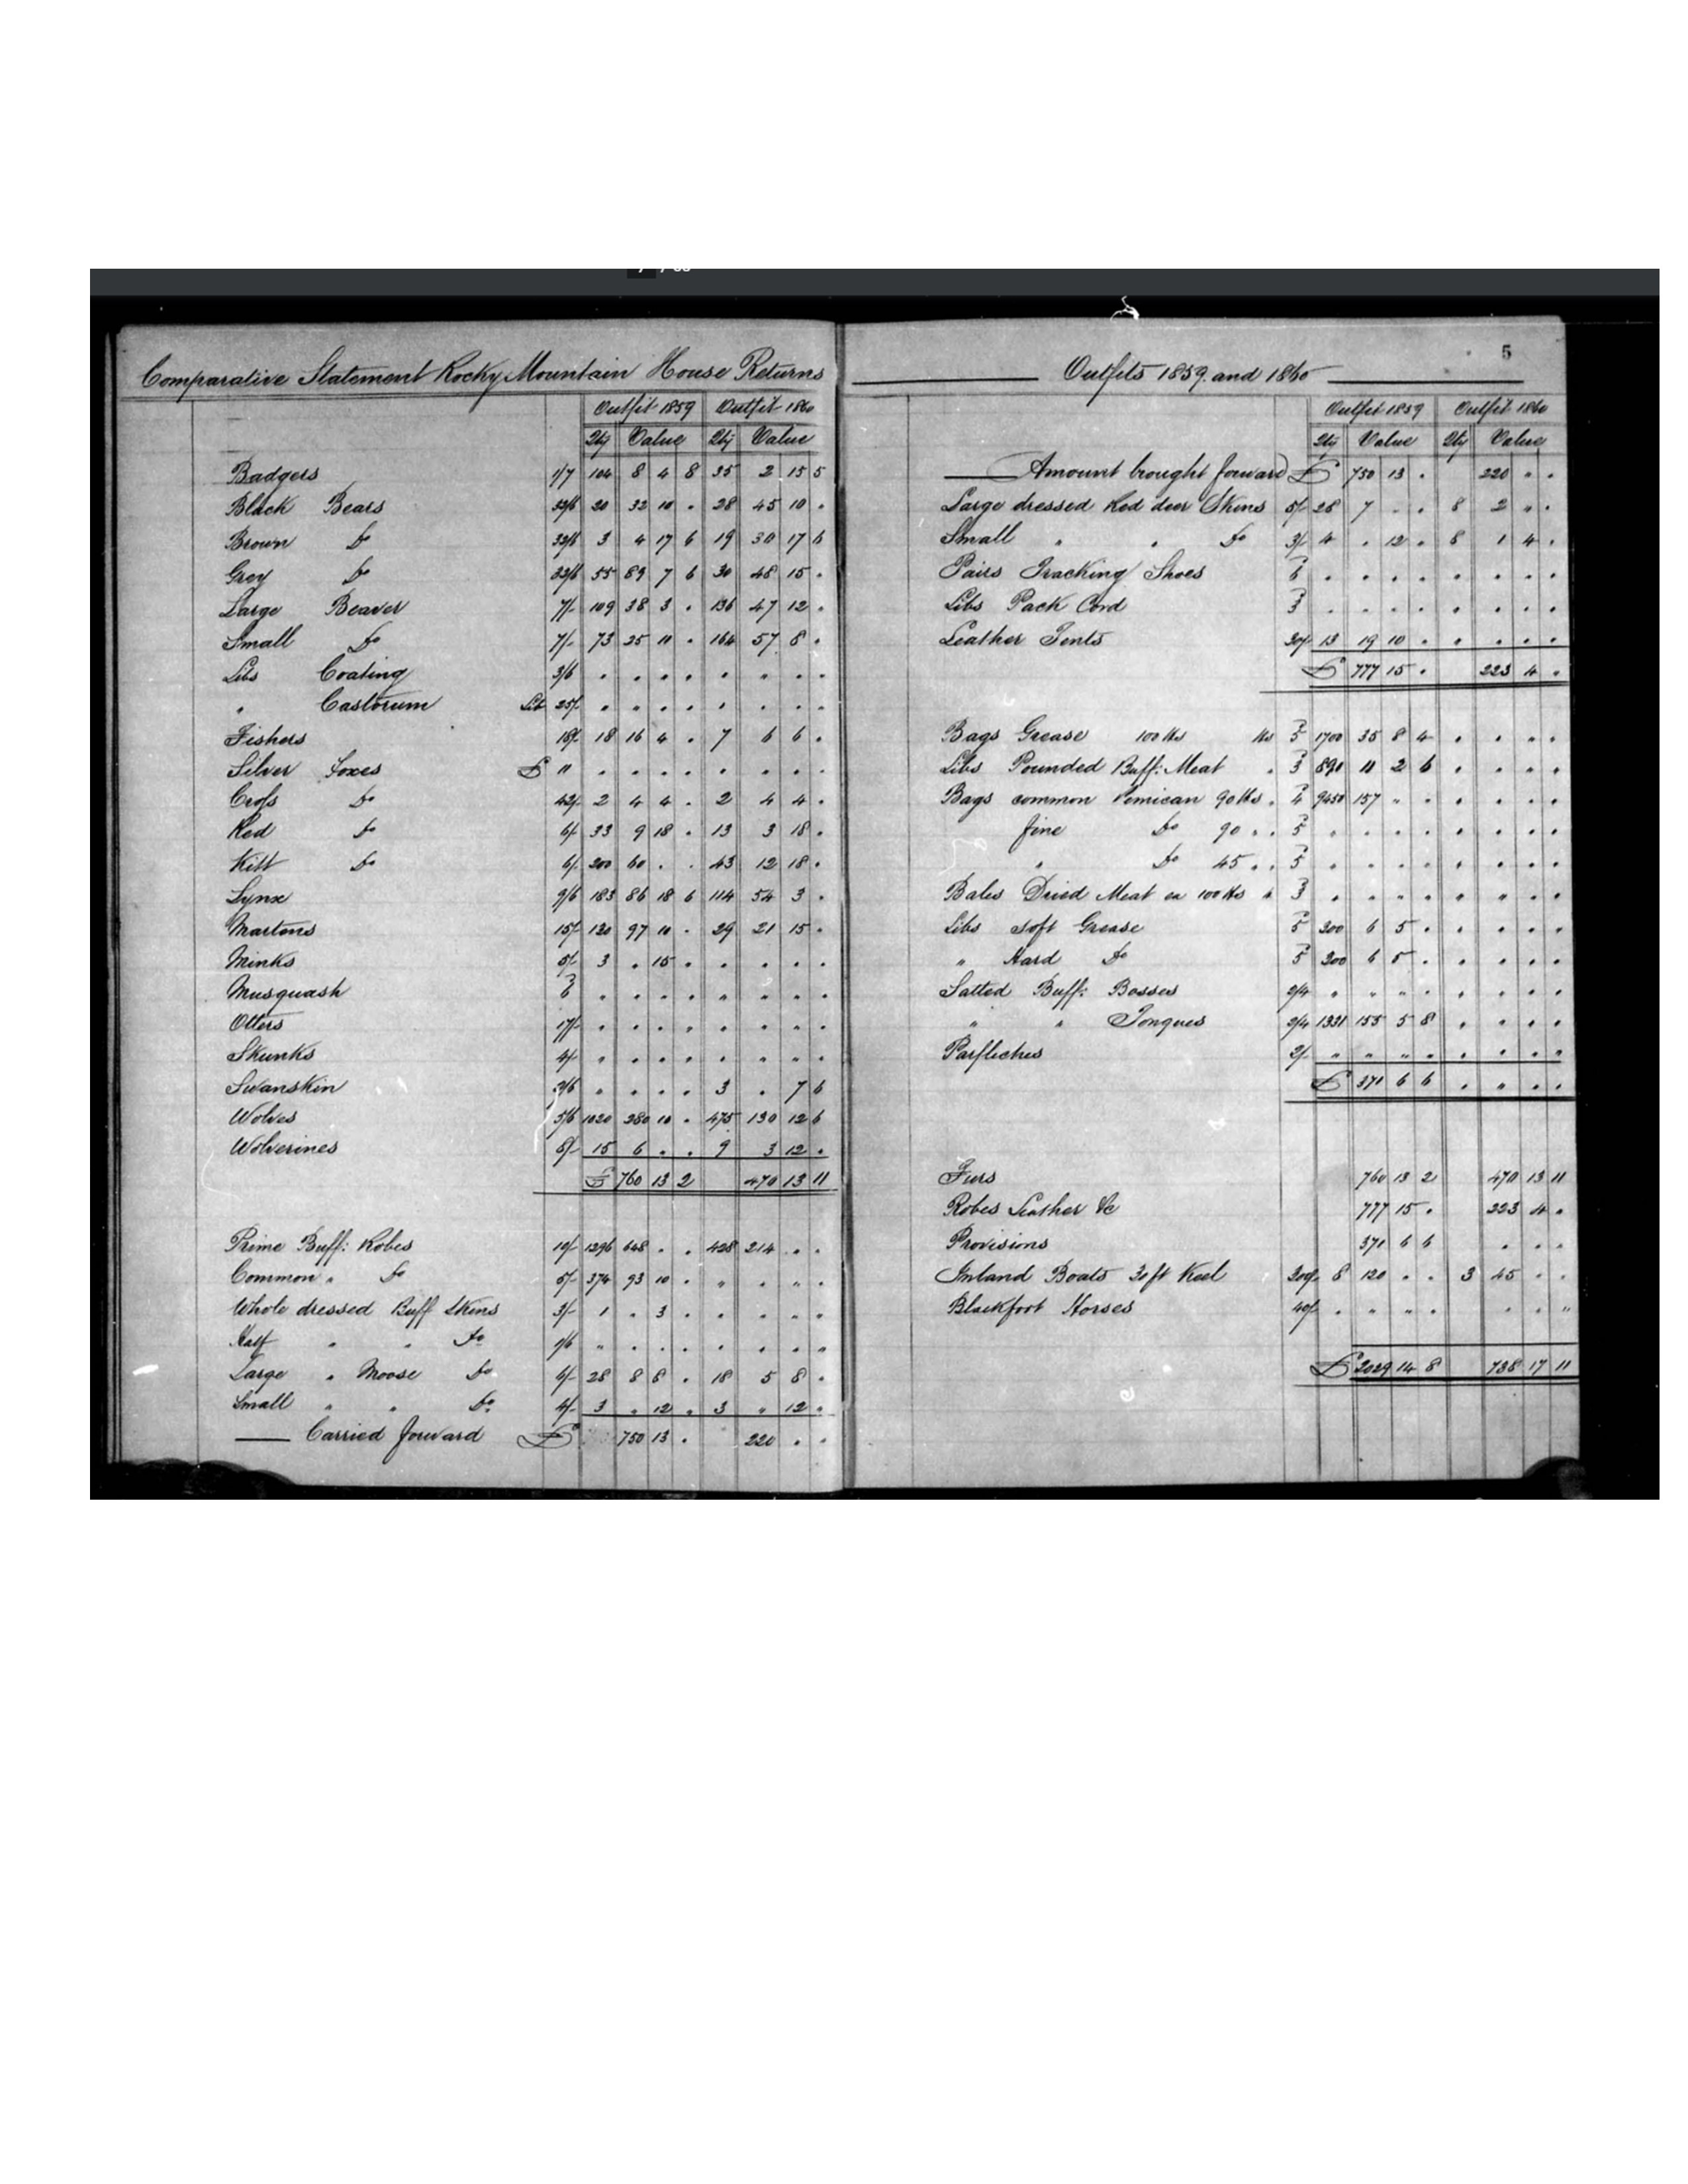 Comparative Statement Rocky Mountain House Returns
Outfit 1859 Outfit 1860
Qty Value Qty Value
Badgers 1/7 104 8 4 8 35 2 15 5
Black Bears 32/6 20 32 10 . 28 45 10 .
Brown Do 32/6 3 4 17 6 19 30 17 6
Grey Do 32/6 55 89 7 6 30 48 15 .
Large Beaver 7/- 109 38 3 . 136 47 12 .
Small Do 7/- 73 25 11 . 164 57 8 .
Libs Coating 3/6 . . . . . . . .
" Castorum Lib 25/- . . . . . . . .
Fishers 18/- 18 16 4 . 7 6 6 .
Silver Foxes £ 11 . . . . . . . .
Cross Do 42/- 2 4 4 . 2 4 4 .
Red Do 6/- 33 9 18 . 13 3 18 .
Kitt Do 6/- 200 60 . . 43 12 18 .
Lynx 9/6 183 86 18 6 114 54 3 .
Martens 15/- 130 97 10 . 29 21 15 .
Minks 5/- 3 . 15 . . . . .
Musquash 6 . . . . . . . .
Otters 17/- . . . . . . . .
Skunks 4/- . . . . . . . .
Swanskin 2/6 . . . . 3 . 7 6
Wolves 5/6 1020 280 10 . 475 130 12 6
Wolverines 8/- 15 6 . . 9 3 12 .
£ 760 13 2 470 13 11
Prime Buff: Robes 10/- 1296 648 . . 428 214 . .
Common " Do 5/- 374 93 10 . " . . .
Whole dressed Buff Skins 3/- 1 . 3 . . . . .
Half " " Do 1/6 . . . . . . . .
Large " Moose Do 6/- 28 8 8 . 18 5 8 .
Small " " Do 4/- 3 . 12 . 3 . 12 .
Carried forward £ 750 13 . 220 . .
5
Outfits 1859 and 1860
Outfit 1859 Outfit 1860
Qty Value Qty Value
Amount brought forward £ 750 13 . 220 . .
Large dressed Red deer Skins 5/- 28 7 . . 8 2 . .
Small " " Do 3/- 4 . 12 . 8 1 4 .
Pairs Tracking Shoes 6 . . . . . . . .
Libs Pack Cord 3 . . . . . . . .
Leather Tents 30/- 13 19 10 . . . . .
£ 777 15 . 223 4 .
Bags Grease 100 lbs lbs 5 1700 35 8 4 . . . .
Libs Pounded Buff: Meat " 3 890 11 2 6 . . . .
Bags common Pemican 90 lbs . 4 9450 157 . . . . . .
fine Do 90 " . 5 . . . . . . . .
" Do 45 . . 5 . . . . . . . .
Bales Dried Meat ea 100 lbs " 3 . . . . . . . .
Libs soft Grease 5 300 6 5 . . . . .
" Hard Do 5 300 6 5 . . . . .
Salted Buff: Bosses 2/4 . . . . . . . .
" " Tongues 2/4 1331 155 5 8 . . . .
Parfleches 2/- . . . . . . . .
£ 371 6 6 . . . .
Furs 760 13 2 470 13 11
Robes Leather &c 777 15 . 223 4 .
Provisions 371 6 6 . . .
Inland Boats 30 ft Keel 300/- 8 120 . . 3 45 . .
Blackfoot Horses 40/- . . . . . . .
£ 2029 14 8 738 17 11